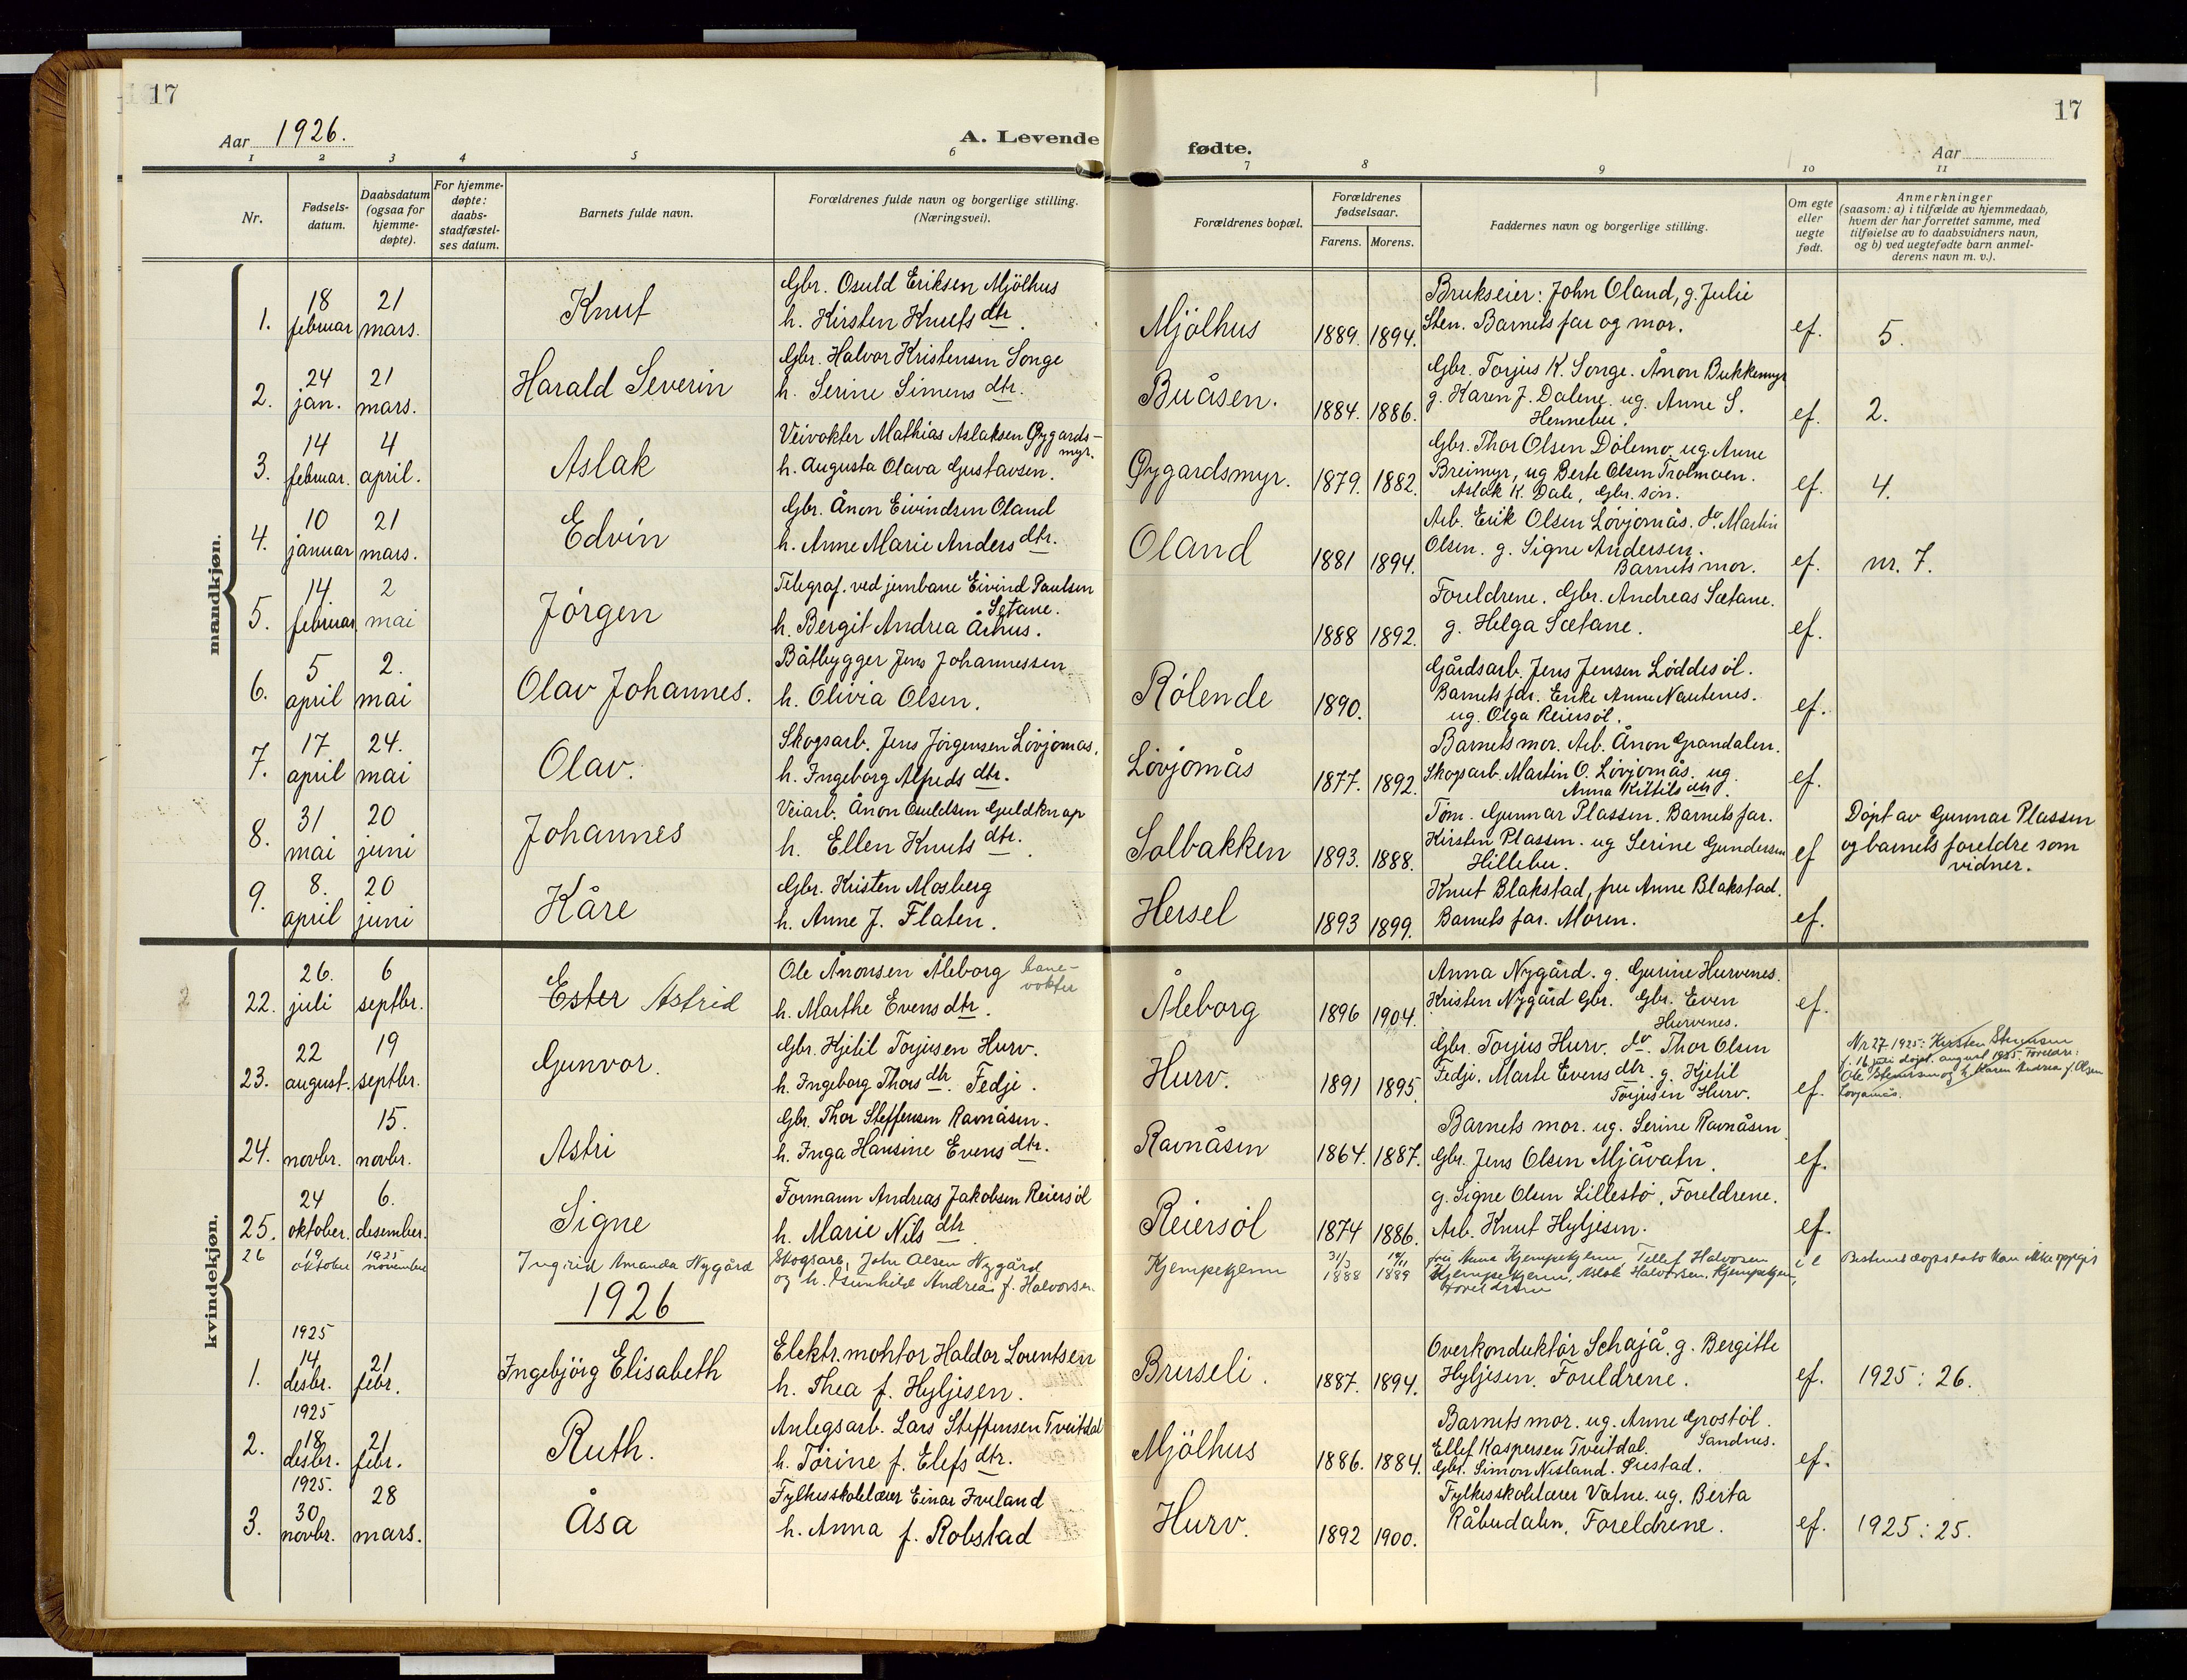 17
17
Aar 1926.
A. Levende
fødte.
Aar
1 2 3 4 5 6 7 8 9 10 11
Nr.
Fødsels-
datum.
Daabsdatum
(ogsaa for
hjemme-
døpte).
For hjemme-
døpte:
daabs-
stadfæstel-
ses datum.
Barnets fulde navn.
Forældrenes fulde navn og borgerlige stilling.
(Næringsvei).
Forældrenes bopæl.
Forældrenes
fødselsaar.
Farens. Morens.
Faddernes navn og borgerlige stilling.
Om egte
eller
uegte
født.
Anmerkninger
(saasom: a) i tilfælde av hjemmedaab,
hvem der har forrettet samme, med
tilføielse av to daabsvidners navn,
og b) ved uegtefødte barn anmel-
derens navn m. v.).
mandkjøn.
1. 18 februar 21 mars. Knut
Gbr. Osuld Eriksen Mjölhus
h. Kirsten Knuts dtr.
Mjölhus 1889. 1894.
Brukseier: John Oland, g. Julie
Sten. Barnets far og mor.
ef. 5.
2. 24 jan. 21 mars. Harald Severin
Gbr. Halvor Kristensen Songe
h. Serine Simens dtr.
Buåsen. 1884. 1886.
Gbr. Torjus K. Songe. Ånon Bukkemyr
g. Karen J. Dalene. ug. Anne S.
Hennebu.
ef. 2.
3. 14 februar. 4 april. Aslak
Veivokter Mathias Aslaksen Øygards-
myr.
h. Augusta Olava Gustavsen.
Øygardsmyr. 1879. 1882.
Gbr. Thor Olsen Dölemo. ug. Anne
Breimyr, ug Berte Olsen Trolmoen.
Aslak K. Dale, Gbr. søn.
ef. 4.
4. 10 januar 21 mars. Edvin
Gbr. Ånon Eivindsen Oland
h. Anne Marie Anders dtr.
Oland 1881 1894.
Arb. Erik Olsen Løvjomås. do. Martin
Olsen. g. Signe Andersen.
Barnets mor.
ef. nr. 7.
5. 14 februar 2 mai Jörgen
Telegraf. ved jernbane Eivind Paulsen
Setane.
h. Bergit Andrea Århus.
1888 1892.
Foreldrene. Gbr. Andreas Sætane.
g. Helga Sætane.
ef.
6. 5 april 2. mai Olav Johannes.
Båtbygger Jens Johannessen
h. Olivia Olsen.
Rölende 1890.
Gårdsarb. Jens Jensen Løddesøl.
Barnets far. Enke Anne Nautenes.
ug. Olga Reiersøl.
ef.
7. 17 april 24. mai Olav.
Skogsarb. Jens Jörgensen Lövjomås.
h. Ingeborg Alfreds dtr.
Lövjomås 1877. 1892.
Barnets mor. Arb. Ånon Grandalen.
Skogsarb. Martin O. Lövjomås. ug.
Anna Kittils dtr.
ef.
8. 31 mai 20 juni Johannes
Veiarb. Ånon Osuldsen Guldknap
h. Ellen Knuts dtr.
Solbakken 1893. 1888.
Töm. Gunnar Plassen. Barnets far.
Kirsten Plassen. ug Serine Gundersen
Hillebu.
ef
Døpt av Gunnar Plassen
og barnets foreldre som
vidner.
9. 8. april 20 juni Kåre
Gbr. Kristen Mosberg
h. Anne J. Flaten.
Hersel 1893 1899.
Knut Blakstad, fru Anne Blakstad.
Barnets far. Moren.
ef.
kvindekjøn.
22. 26. juli 6 septbr. Ester Astrid
Ole Ånonsen Åleborg bane-
vokter
h. Marthe Evens dtr.
Åleborg 1896 1904.
Anna Nygård. g. Gurine Hurvenes.
Kristen Nygård Gbr. Gbr. Even
Hurvenes.
ef.
23. 22 august. 19 septbr. Gunvor.
Gbr. Kjetil Torjusen Hurv.
h. Ingeborg Thors dtr. Fedje.
Hurv. 1891 1895.
Gbr. Torjus Hurv. do. Thor Olsen
Fedji. Marte Evens dtr. g. Kjetil
Torjusen Hurv.
ef.
Nr 27 1925: Kirsten
f. 16 juli døpt. august 1925. Foreldre:
Ole og h. Karen Andrea f. Olsen
Lovjamås.
24. novbr. 15. novbr. Astri
Gbr. Thor Steffensen Ravnåsen.
h. Inga Hansine Evens dtr.
Ravnåsen 1864. 1887.
Barnets mor. ug. Serine Ravnåsen
Gbr. Jens Olsen Mjåvatn.
ef.
25. 24 oktober. 6. desember. Signe
Formann Andreas Jakobsen Reiersöl
h. Marie Nils dtr
Reiersöl 1874 1886.
g. Signe Olsen Lillestö, Foreldrene.
Arb. Knut Hyljesen.
ef.
26 19 oktober 1925 november Ingrid Amanda Nygård
Skogsarb, John Olsen Nygård
og h. Gunhild Andrea f. Halvorsen
Kjempekjenn 31/3 1888 1889
fru Anne Kjempekjenn, Tellef Halvorsen
Kjempekjenn, Aslak Halvorsen, Kjempekjenn,
Foreldrene
Bestemt dåpsdato kan ikke oppgis
1926
1. 1925 14 desbr. 21 febr. Ingebjörg Elisabeth
Elektr. montor Haldor Lorentsen
h. Thea f. Hyljesen.
Bruseli. 1887. 1894.
Overkonduktör Schajå. g. Bergitte
Hyljesen. Foreldrene.
ef. 1925: 26.
2. 1925 18 desbr. 21 febr. Ruth.
Anlegsarb. Lars Steffensen Tveitdal
h. Törine f. Elefs dtr.
Mjölhus 1886. 1884.
Barnets mor. ug. Anne Grostöl.
Sandnes.
Ellef Kaspersen Tveitdal.
Gbr. Simon Nisland.
ef.
3. 1925. 30 novbr. 28 mars. Åsa
Fylkesskolelærer Einar Iveland
h. Anna f. Robstad
Hurv. 1892 1900.
Fylkesskolelærer Vatne. ug. Berta
Råbudalen, Foreldrene.
ef. 1925: 25.